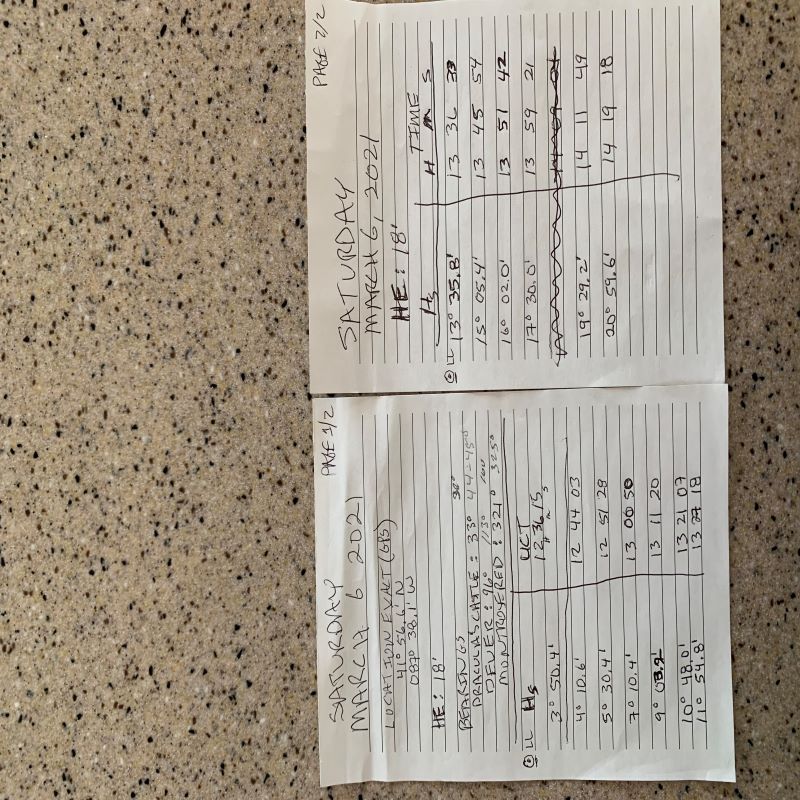 PAGE 1/2
SATURDAY
MARCH 6 2021
LOCATION EXACT (GPS)
41° 56.6' N
087° 38.1' W
HE: 18'
BEARINGS
DRACULAS CASTLE: 33°
DEVER: 96°
MONTROYERED: 321° 325°
LL Hs UCT
3° 50.4' 12 36 15
H M S
4° 10.6' 12 44 03
5° 30.4' 12 51 28
7° 10.4' 13 00 50
9° 03.2' 13 11 20
10° 48.0' 13 21 07
11° 54.8' 13 27 18
PAGE 2/2
SATURDAY
MARCH 6, 2021
HE: 18'
Hs TIME
H M S
LL 13° 35.8' 13 36 33
15° 05.4' 13 45 54
16° 02.0' 13 51 42
17° 30.0' 13 59 21
19° 29.2' 14 11 49
20° 59.6' 14 19 18